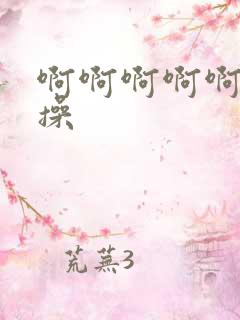 啊啊啊啊啊
操
芜蕪3